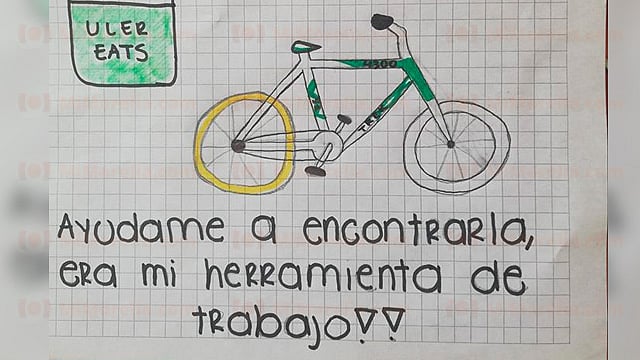 ULER
EATS
4300
TREK
AYUDAME A ENCONTRARLA,
ERA mi HERRAMIENTA DE
tRAbAJO!!